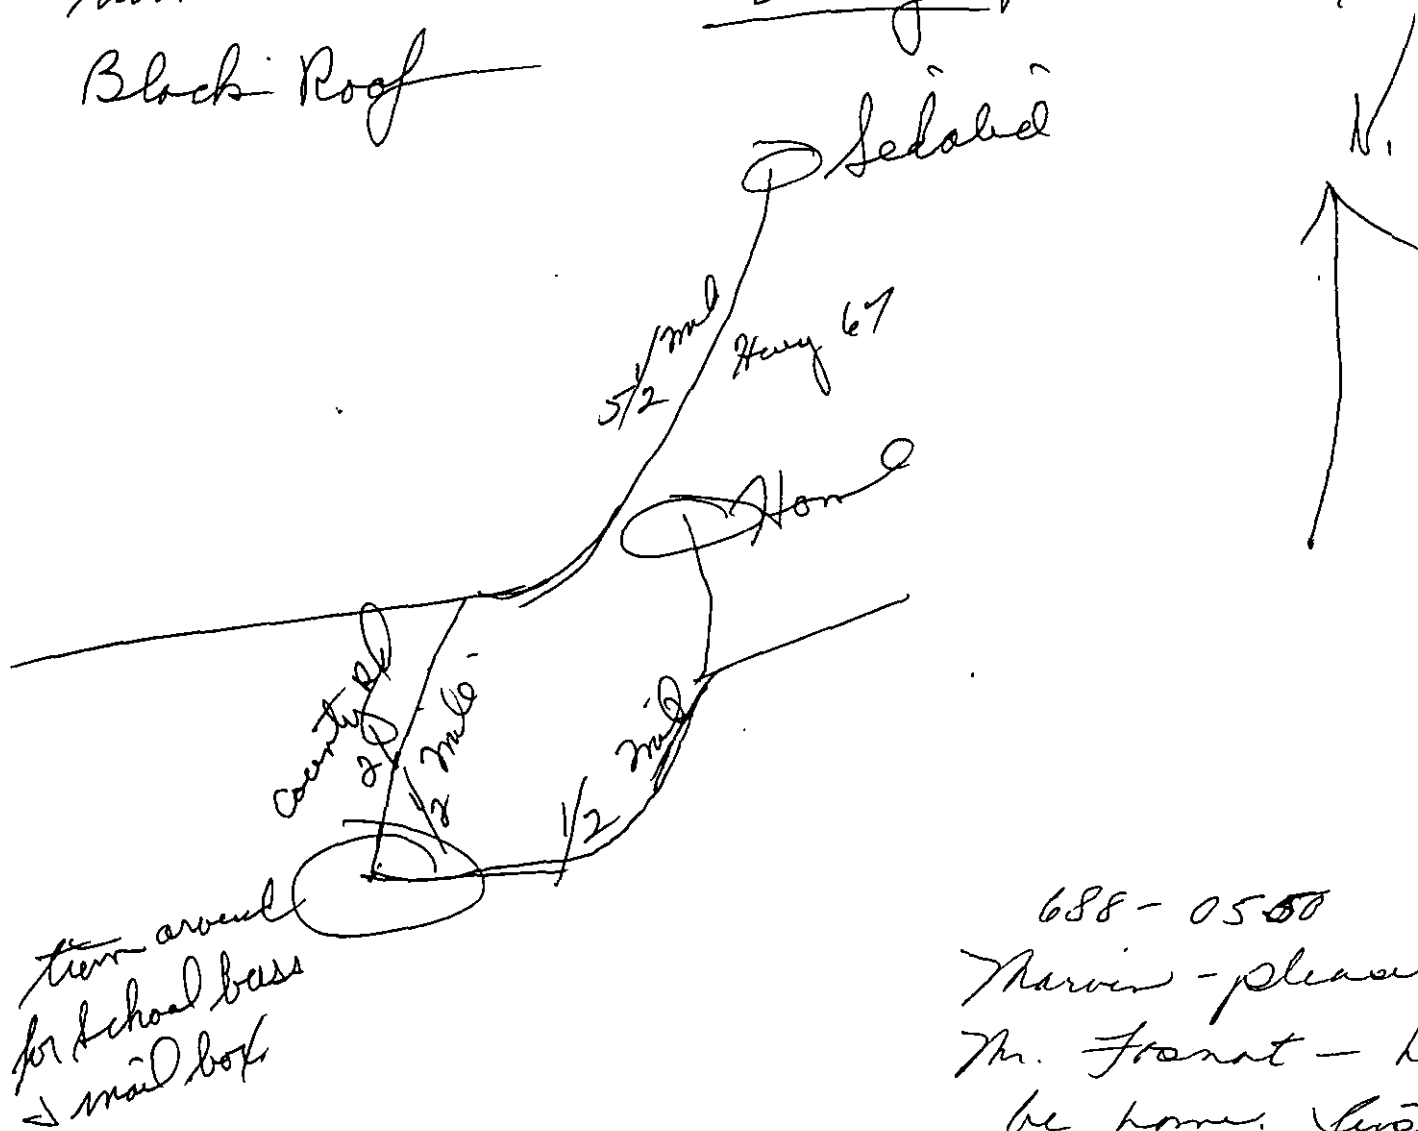 Black Roof
Sedalia
N.
5 1/2 mil
Hwy 67
Home
County Rd
1/2 mile
1/2 mile
turn around
for School buss
& mail box
688-0550
Marvin - please
Mr.
be home.